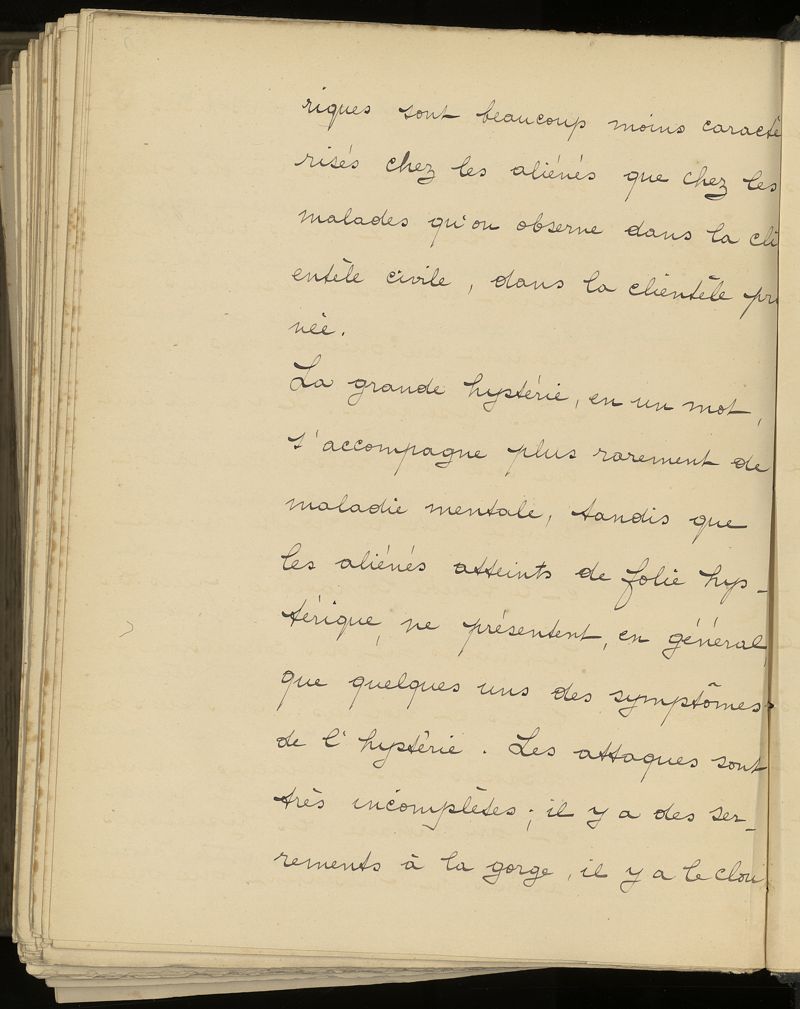 riques sont beaucoup moins caracté
risés chez les aliénés que chez les
malades qu'on observe dans la cli
entèle civile, dans la clientèle pri
vée.
La grande hystérie, en un mot,
s'accompagne plus rarement de
maladie mentale, tandis que
les aliénés atteints de folie hys-
térique, ne présentent, en général,
que quelques uns des symptômes
de l'hystérie. Les attaques sont
très incomplètes ; il y a des ser-
rements à la gorge, il y a le clou